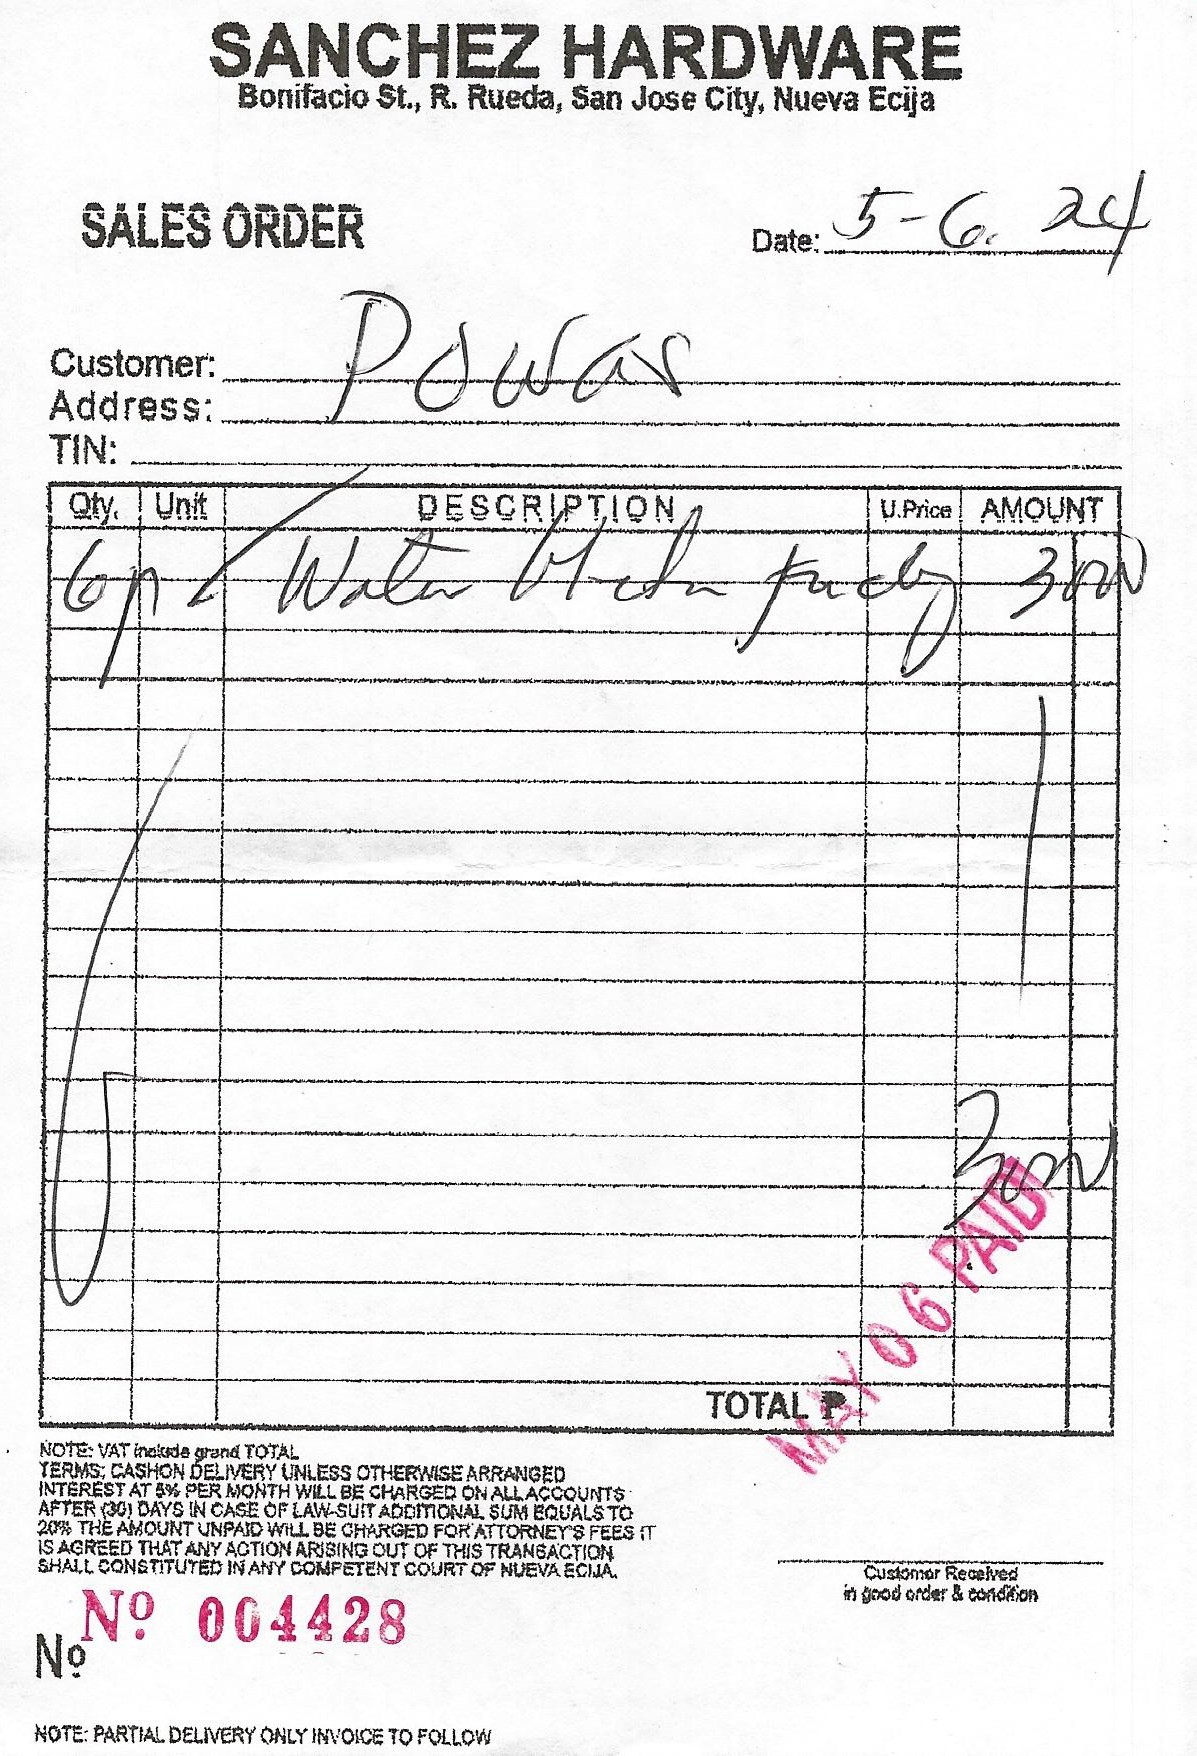 SANCHEZ HARDWARE
Bonifacio St., R. Rueda, San Jose City, Nueva Ecija
SALES ORDER
Date: 5-6. 24
Customer:
Address:
TIN:
Qty. Unit DESCRIPTION U.Price AMOUNT
6 Water
MAY 06 PAID
TOTAL ₱
NOTE: VAT include grand TOTAL
TERMS: CASHON DELIVERY UNLESS OTHERWISE ARRANGED
INTEREST AT 5% PER MONTH WILL BE CHARGED ON ALL ACCOUNTS
AFTER (30) DAYS IN CASE OF LAW-SUIT ADDITIONAL SUM EQUALS TO
20% THE AMOUNT UNPAID WILL BE CHARGED FOR ATTORNEY'S FEES IT
IS AGREED THAT ANY ACTION ARISING OUT OF THIS TRANSACTION
SHALL CONSTITUTED IN ANY COMPETENT COURT OF NUEVA ECIJA.
Customer Received
in good order & condition
Nº 004428
Nº
NOTE: PARTIAL DELIVERY ONLY INVOICE TO FOLLOW